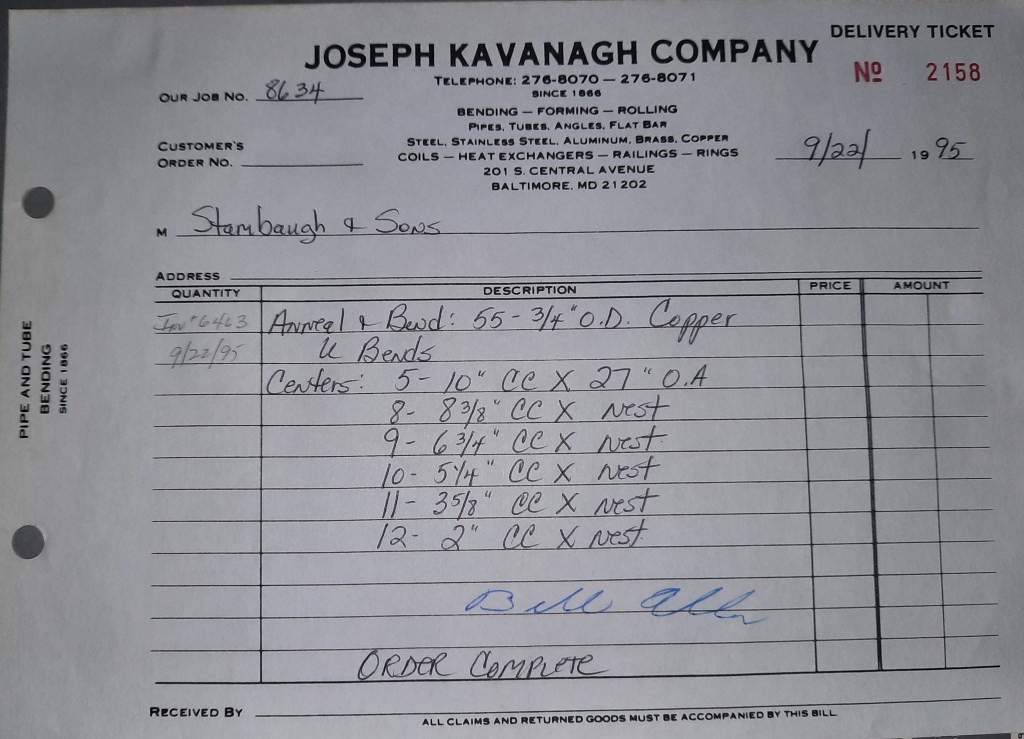 DELIVERY TICKET
JOSEPH KAVANAGH COMPANY
Nº 2158
TELEPHONE: 276-8070 — 276-8071
SINCE 1866
OUR JOB NO. 8634
BENDING — FORMING — ROLLING
PIPES, TUBES, ANGLES, FLAT BAR
STEEL, STAINLESS STEEL, ALUMINUM, BRASS, COPPER
COILS — HEAT EXCHANGERS — RAILINGS — RINGS
201 S. CENTRAL AVENUE
BALTIMORE, MD 21202
CUSTOMER'S
ORDER NO.
9/22/ 19 95
M Stambaugh & Sons
ADDRESS
QUANTITY DESCRIPTION PRICE AMOUNT
Inv # 6463 Anneal & Bend: 55 - 3/4" O.D. Copper
9/22/95 U Bends
Centers: 5 - 10" CC X 27" O.A
8 - 8 3/8" CC X Nest
9 - 6 3/4" CC X Nest
10 - 5 1/4" CC X Nest
11 - 3 5/8" CC X Nest
12 - 2" CC X Nest
Bill
ORDER COMPLETE
RECEIVED BY
ALL CLAIMS AND RETURNED GOODS MUST BE ACCOMPANIED BY THIS BILL
PIPE AND TUBE
BENDING
SINCE 1866